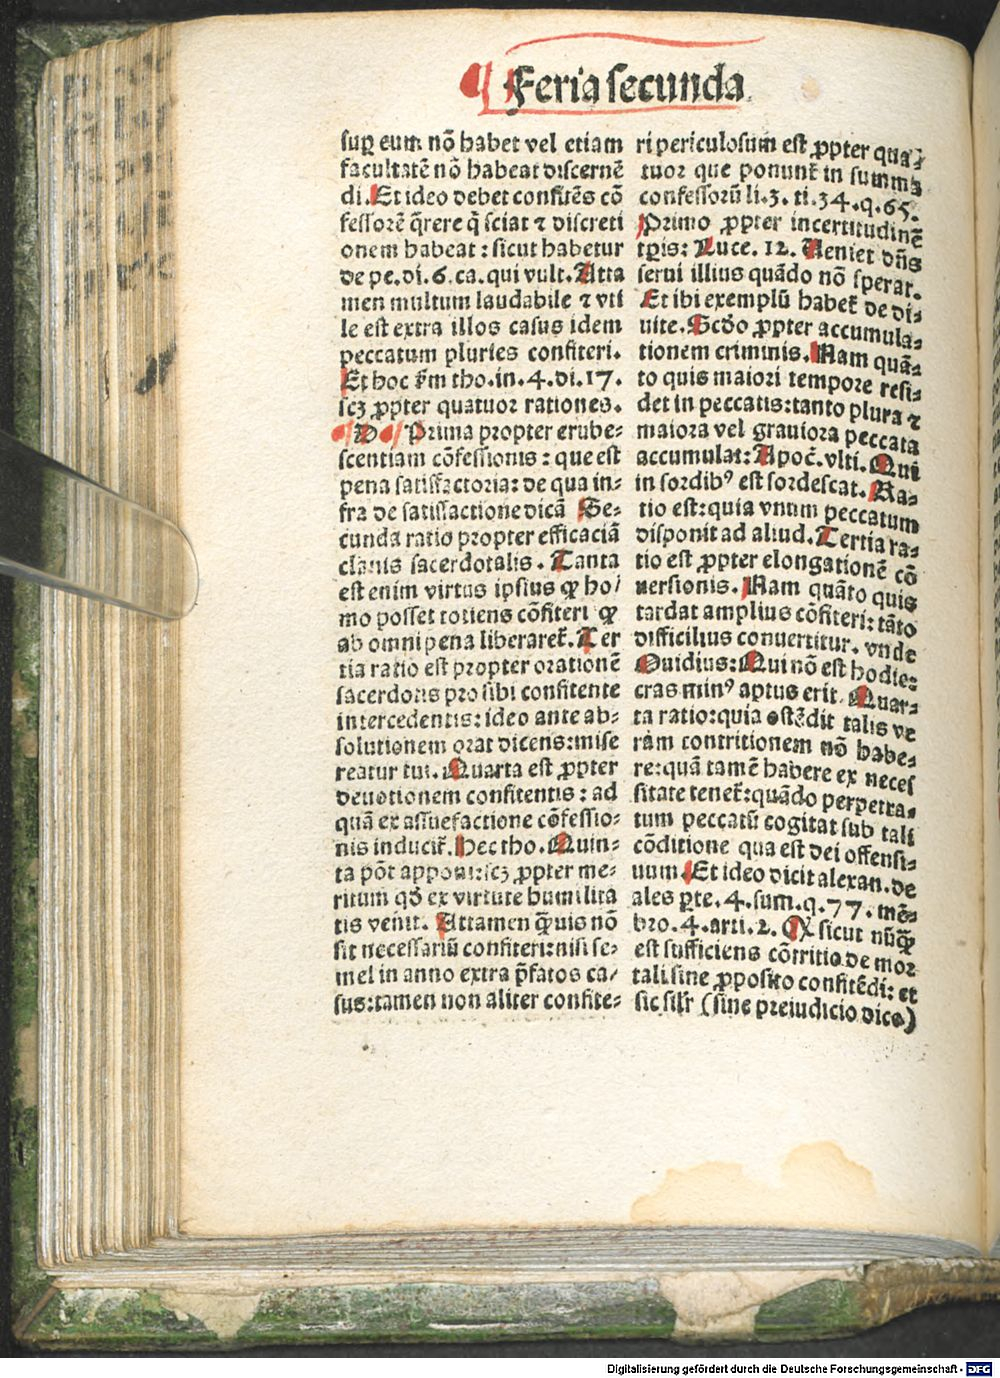 ¶ Feria secunda
suꝑ eum nõ habet vel etiam
facultatē nõ habeat discernē
di. Et ideo debet confitēs cõ
fessorē q̃rere q̃ sciat ⁊ discreti
onem habeat : sicut habetur
de pe. di. 6. ca. qui vult. Atta
men multum laudabile ⁊ vti
le est extra illos casus idem
peccatum pluries confiteri.
Et hoc ẜm tho. in. 4. di. 17.
scꝫ ꝓpter quatuor rationes.
¶ D ¶ Prima propter erube⸗
scentiam cõfessionis : que est
pena satisfactoria: de qua in⸗
fra de satisfactione dicā Se⸗
cunda ratio propter efficaciā
clauis sacerdotalis . Tanta
est enim virtus ipsius ꝙ ho/
mo posset totiens cõfiteri ꝙ
ab omni pena liberaret̃. Ter
tia ratio est propter orationē
sacerdotis pro sibi confitente
intercedentis: ideo ante ab⸗
solutionem orat dicens: mise
reatur tui. Quarta est ꝓpter
deuotionem confitentis : ad
quā ex assuefactione cõfessio⸗
nis inducit̃. Hec tho. Quin⸗
ta põt apponi: scꝫ ꝓpter me⸗
ritum qđ ex virtute humilita
tis venit. Attamen q̃uis nõ
sit necessariū confiteri: nisi se⸗
mel in anno extra p̃fatos ca⸗
sus: tamen non aliter confite⸗
ri periculosum est ꝓpter qua⸗
tuor que ponunt̃ in summa
confessorū li. 3. ti. 34. q. 65.
Primo ꝓpter incertitudinē
tꝑis: Luce. 12. Veniet dñs
serui illius quādo nõ sperat.
Et ibi exemplū habet̃ de di⸗
uite. Scđo ꝓpter accumula⸗
tionem criminis. Nam quā⸗
to quis maiori tempore resi⸗
det in peccatis: tanto plura ⁊
maiora vel grauiora peccata
accumulat: Apoc̃. vlti. Qui
in sordibꝰ est sordescat. Ra⸗
tio est: quia vnum peccatum
disponit ad aliud. Tertia ra⸗
tio est ꝓpter elongationē cõ
uersionis. Nam quāto quis
tardat amplius cõfiteri: tāto
difficilius conuertitur. vnde
Ouidius: Qui nõ est hodie:
cras minꝰ aptus erit. Quar⸗
ta ratio: quia ostēdit talis ve
ram contritionem nõ habe⸗
re: quā tamē habere ex neces
sitate tenet̃: quādo perpetra⸗
tum peccatū cogitat sub tali
cõditione qua est dei offensi⸗
uum. Et ideo dicit alexan. de
ales ꝑte. 4. sum. q. 77. mē⸗
bro. 4. arti. 2. Qꝫ sicut nūq̃
est sufficiens cõtritio de mor
tali sine ꝓposito confitēdi: et
sic silr̃ (sine preiudicio dico)
Digitalisierung gefördert durch die Deutsche Forschungsgemeinschaft - DFG